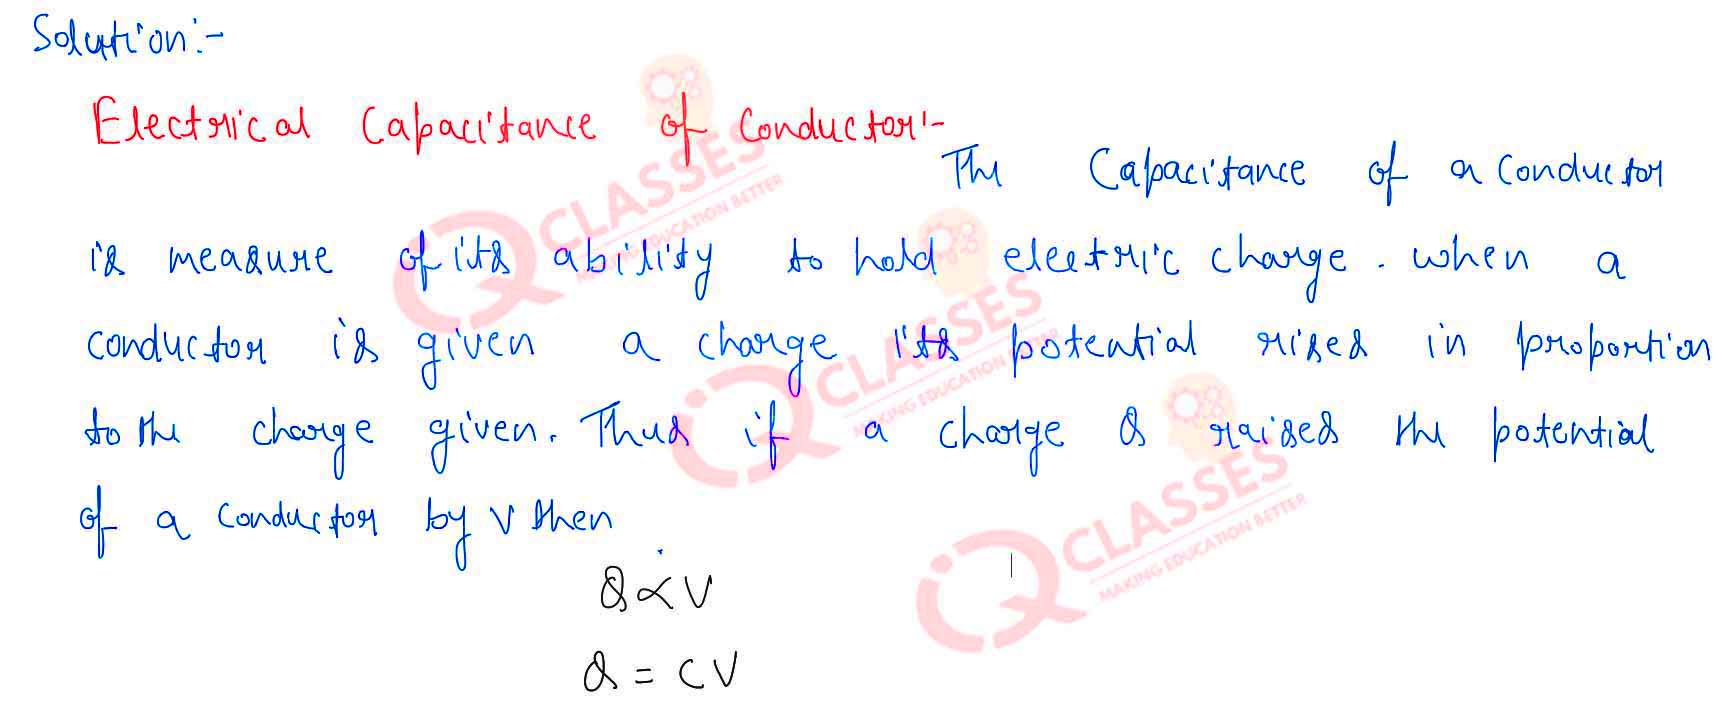 Solution:-
Electrical Capacitance of Conductor:-
The Capacitance of a conductor
is measure of its ability to hold electric charge. when a
conductor is given a charge its potential rises in proportion
to the charge given. Thus if a charge Q raises the potential
of a conductor by V then
Q ∝ V
Q = CV
IQ CLASSES
MAKING EDUCATION BETTER
IQ CLASSES
MAKING EDUCATION BETTER
IQ CLASSES
MAKING EDUCATION BETTER